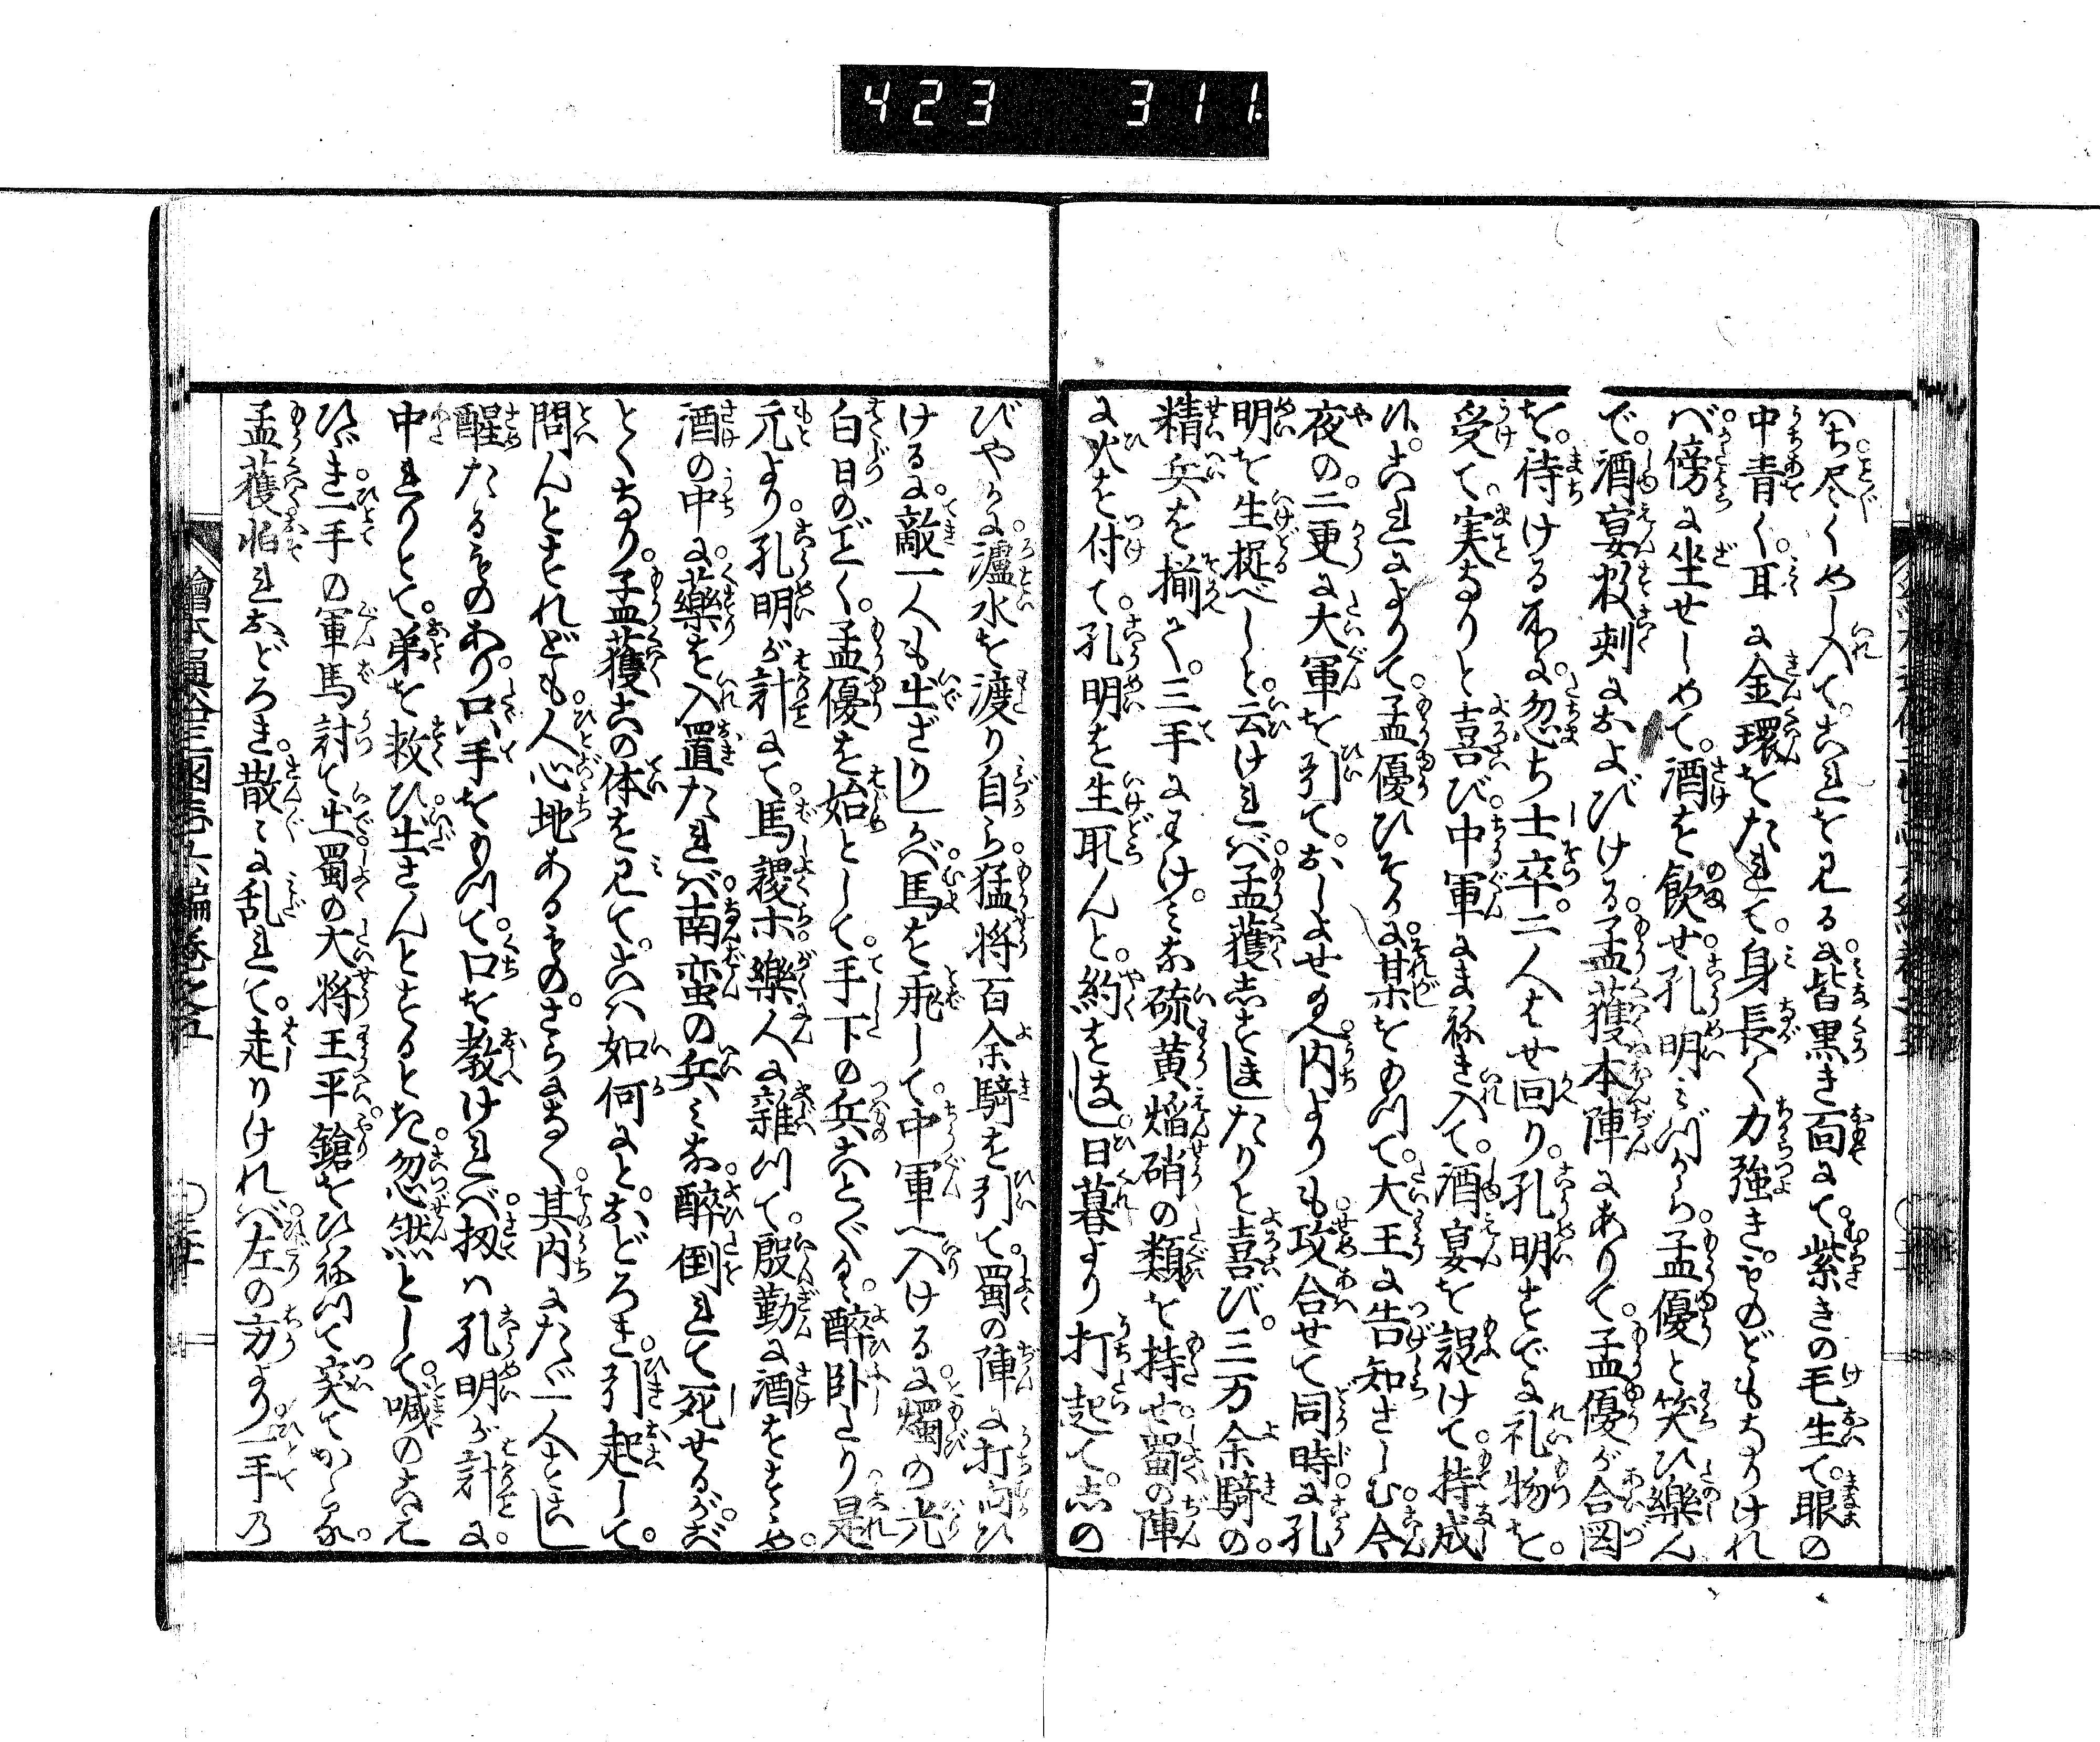 423 311.
いち尽くめし入て。これを見るに。皆黒き面にて。紫きの毛生て。眼の
中青く。耳に金環をたれて。身長く力強きものどもなりけれ
ば。傍に坐せしめて。酒を飲せ。孔明みづから。孟優と笑ひ楽ん
で。酒宴数刻におよびける。孟獲本陣にありて。孟優が合図
を。待ける所に。忽ち士卒。二人はせ回り。孔明すでに礼物を。
受て。実なりと喜び。中軍にまねき入て。酒宴を設けて。持成
ぬ。これによりて。孟優ひそかに。某をもつて。大王に告知さしむ。今
夜の。二更に大軍を引て。おしよせ玉へ。内よりも。攻合せて同時に。孔
明を生捉べしと。云けれバ。孟獲しすましたりと喜び。三万余騎の。
精兵を揃へ。三手にわけ。みな硫黄焔硝の類を持せ。蜀の陣
に火を付て。孔明を生取んと。約をなし。日暮より打起て。しの
びやかに。瀘水を渡り自ら。猛将百余騎を引て。蜀の陣に打向ひ
ける に。敵一人も出ざりしかバ。馬を飛して。中軍へ入けるに。燭の光
白日のごとく。孟優を始として。手下の兵ことごとく。醉卧たり。是
元より。孔明が計にて。馬謖ホ。楽人に雜つて。殷勤に酒をすゝめ。
酒の中に。薬を入置たれバ。南蛮の兵。みな。醉倒れて死せるがご
とくなり。孟獲この体を見て。こハ如何にと。おどろき。引起して。
問んとすれども。人心地あるもの。さらになく。其内にたゞ一人すこし
醒たるものあり。只手をもつて。口を教けれバ。扨ハ孔明が計に。
中れりとて。弟を救ひ出さんとするとき。忽然として。喊のこゑ
ひゞき。一手の軍馬討て出。蜀の大将王平。鎗をひねつて突てかゝる。
孟獲怕れおどろき。散々に乱れて。走りけれバ。左の方より。一手の